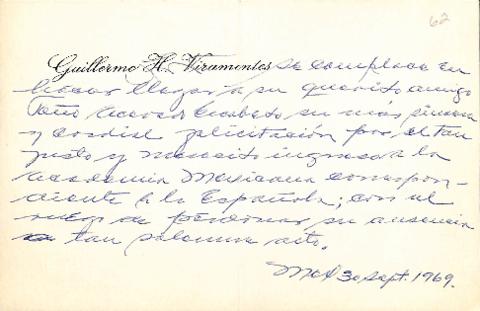 62
Guillermo H. Viramontes se complace en
hacer llegar a su querido amigo
Toño Acevedo Escobedo su más sincera
y cordial felicitación por el tan
justo y merecido ingreso a la
Academia Mexicana correspon-
diente a la Española; con el
ruego de perdonar su ausencia
a tan solemne acto.
Mex 30 sept. 1969.